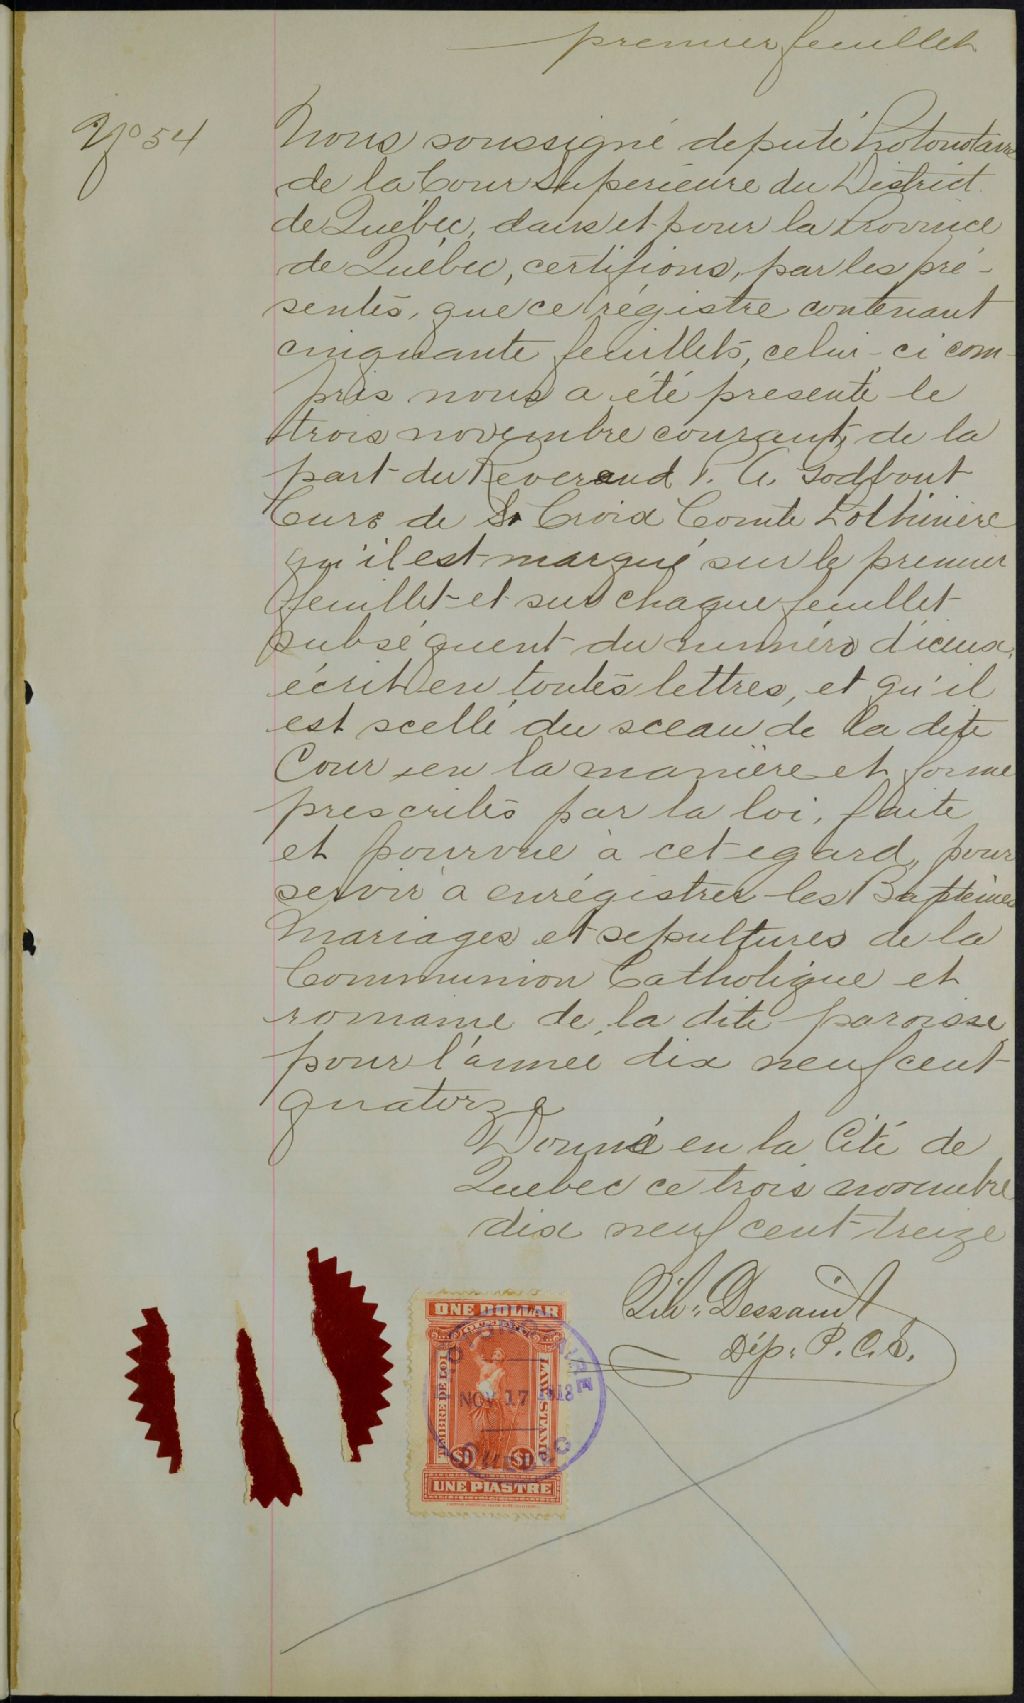 premier feuillet
No 54
Nous soussigné deputé Protonotaire
de la Cour Superieure du District
de Québec, dans et pour la Province
de Québec, certifions, par les pré-
sentes, que ce régistre contenant
cinquante feuillets, celui-ci com-
pris nous a été presenté le
trois novembre courant, de la
part du Reverend P. A. Godbout
Curé de St Croix Comté Lotbinière
qu'il est marqué sur le premier
feuillet et sur chaque feuillet
subséquent du numéro d'iceux,
écrit en toutes lettres, et qu'il
est scellé du sceau de la dite
Cour, en la manière et forme
prescrites par la loi, faite
et pourvue à cet egard, pour
servir à enrégistrer les Baptêmes
Mariages et sepultures de la
Communion Catholique et
romaine de la dite paroisse
pour l'année dix neuf cent
quatorze
Donné en la Cité de
Quebec ce trois novembre
dix neuf cent treize
Dessaint
Dép. P. C. S.
ONE DOLLAR
TIMBRE DE LOI
LAW STAMP
$1 $1
UNE PIASTRE
PROTONOTAIRE
NOV 17 1913
QUEBEC